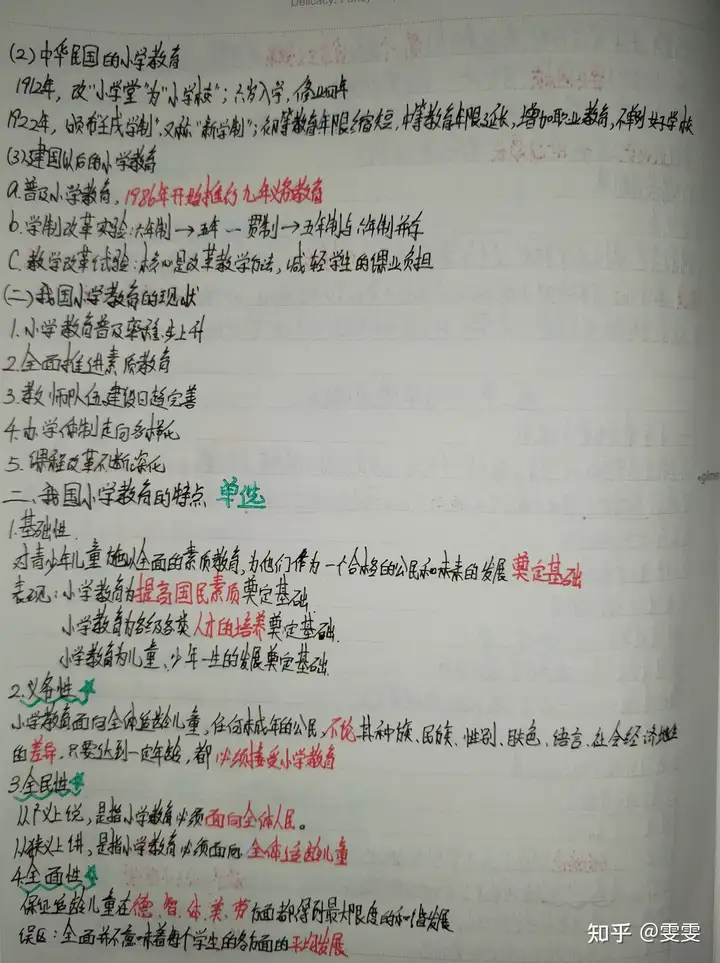 (2)中华民国的小学教育
1912年，改"小学堂"为"小学校"；六岁入学，修业四年
1922年，颁布壬戌学制"又称"新学制"；初等教育年限缩短，中等教育年限延长，增加职业教育，不单列女子学校
(3)建国以后的小学教育
a.普及小学教育，1986年开始推行九年义务教育
b.学制改革实验：六年制→五年一贯制→五年制与六年制并存
C.教学改革试验：核心是改革教学方法，减轻学生的课业负担
(二)我国小学教育的现状
1.小学教育普及率稳步上升
2.全面推进素质教育
3.教师队伍建设日趋完善
4.办学体制走向多样化
5.课程改革不断深化
二、我国小学教育的特点 单选
1.基础性.
对青少年儿童施以全面的素质教育，为他们作为一个合格的公民和未来的发展奠定基础
表现：小学教育为提高国民素质奠定基础.
小学教育为各级各类人才的培养奠定基础.
小学教育为儿童、少年一生的发展奠定基础.
2.义务性
小学教育面向全体适龄儿童，任何未成年的公民，不论其种族、民族、性别、肤色、语言、社会经济地位
的差异，只要达到一定年龄，都必须接受小学教育
3.全民性
从广义上说，是指小学教育必须面向全体人民。
从狭义上讲，是指小学教育必须面向全体适龄儿童
4.全面性
保证适龄儿童在德、智、体、美、劳方面都得到最大限度的和谐发展
误区：全面并不意味着每个学生的各方面的平均发展
知乎 @雯雯